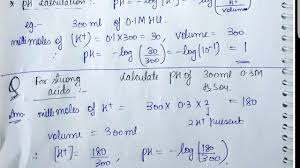 * pH Calculation :
[H+]
volume
eg:- 300 ml of 0.1M HCl.
millimoles of [H+] = 0.1 × 300 = 30, volume = 300
∴ pH = -log(30/300) = -log(10⁻¹) = 1
Q For strong acids :- Calculate pH of 300ml 0.3M H₂SO₄.
Ans. millimoles of H+ = 300 × 0.3 × 2 = 180
2H+ present
volume = 300ml
[H+] = 180/300 pH = -log(180/300)